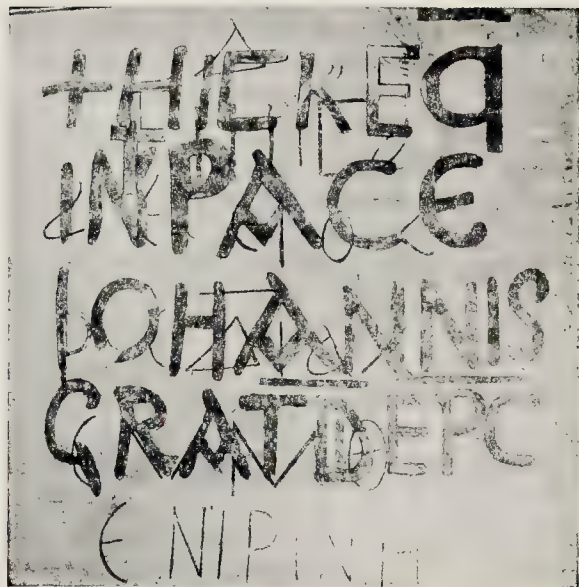 + HIC REQ
IN PACE
IOHANNIS
GRAT DEPC